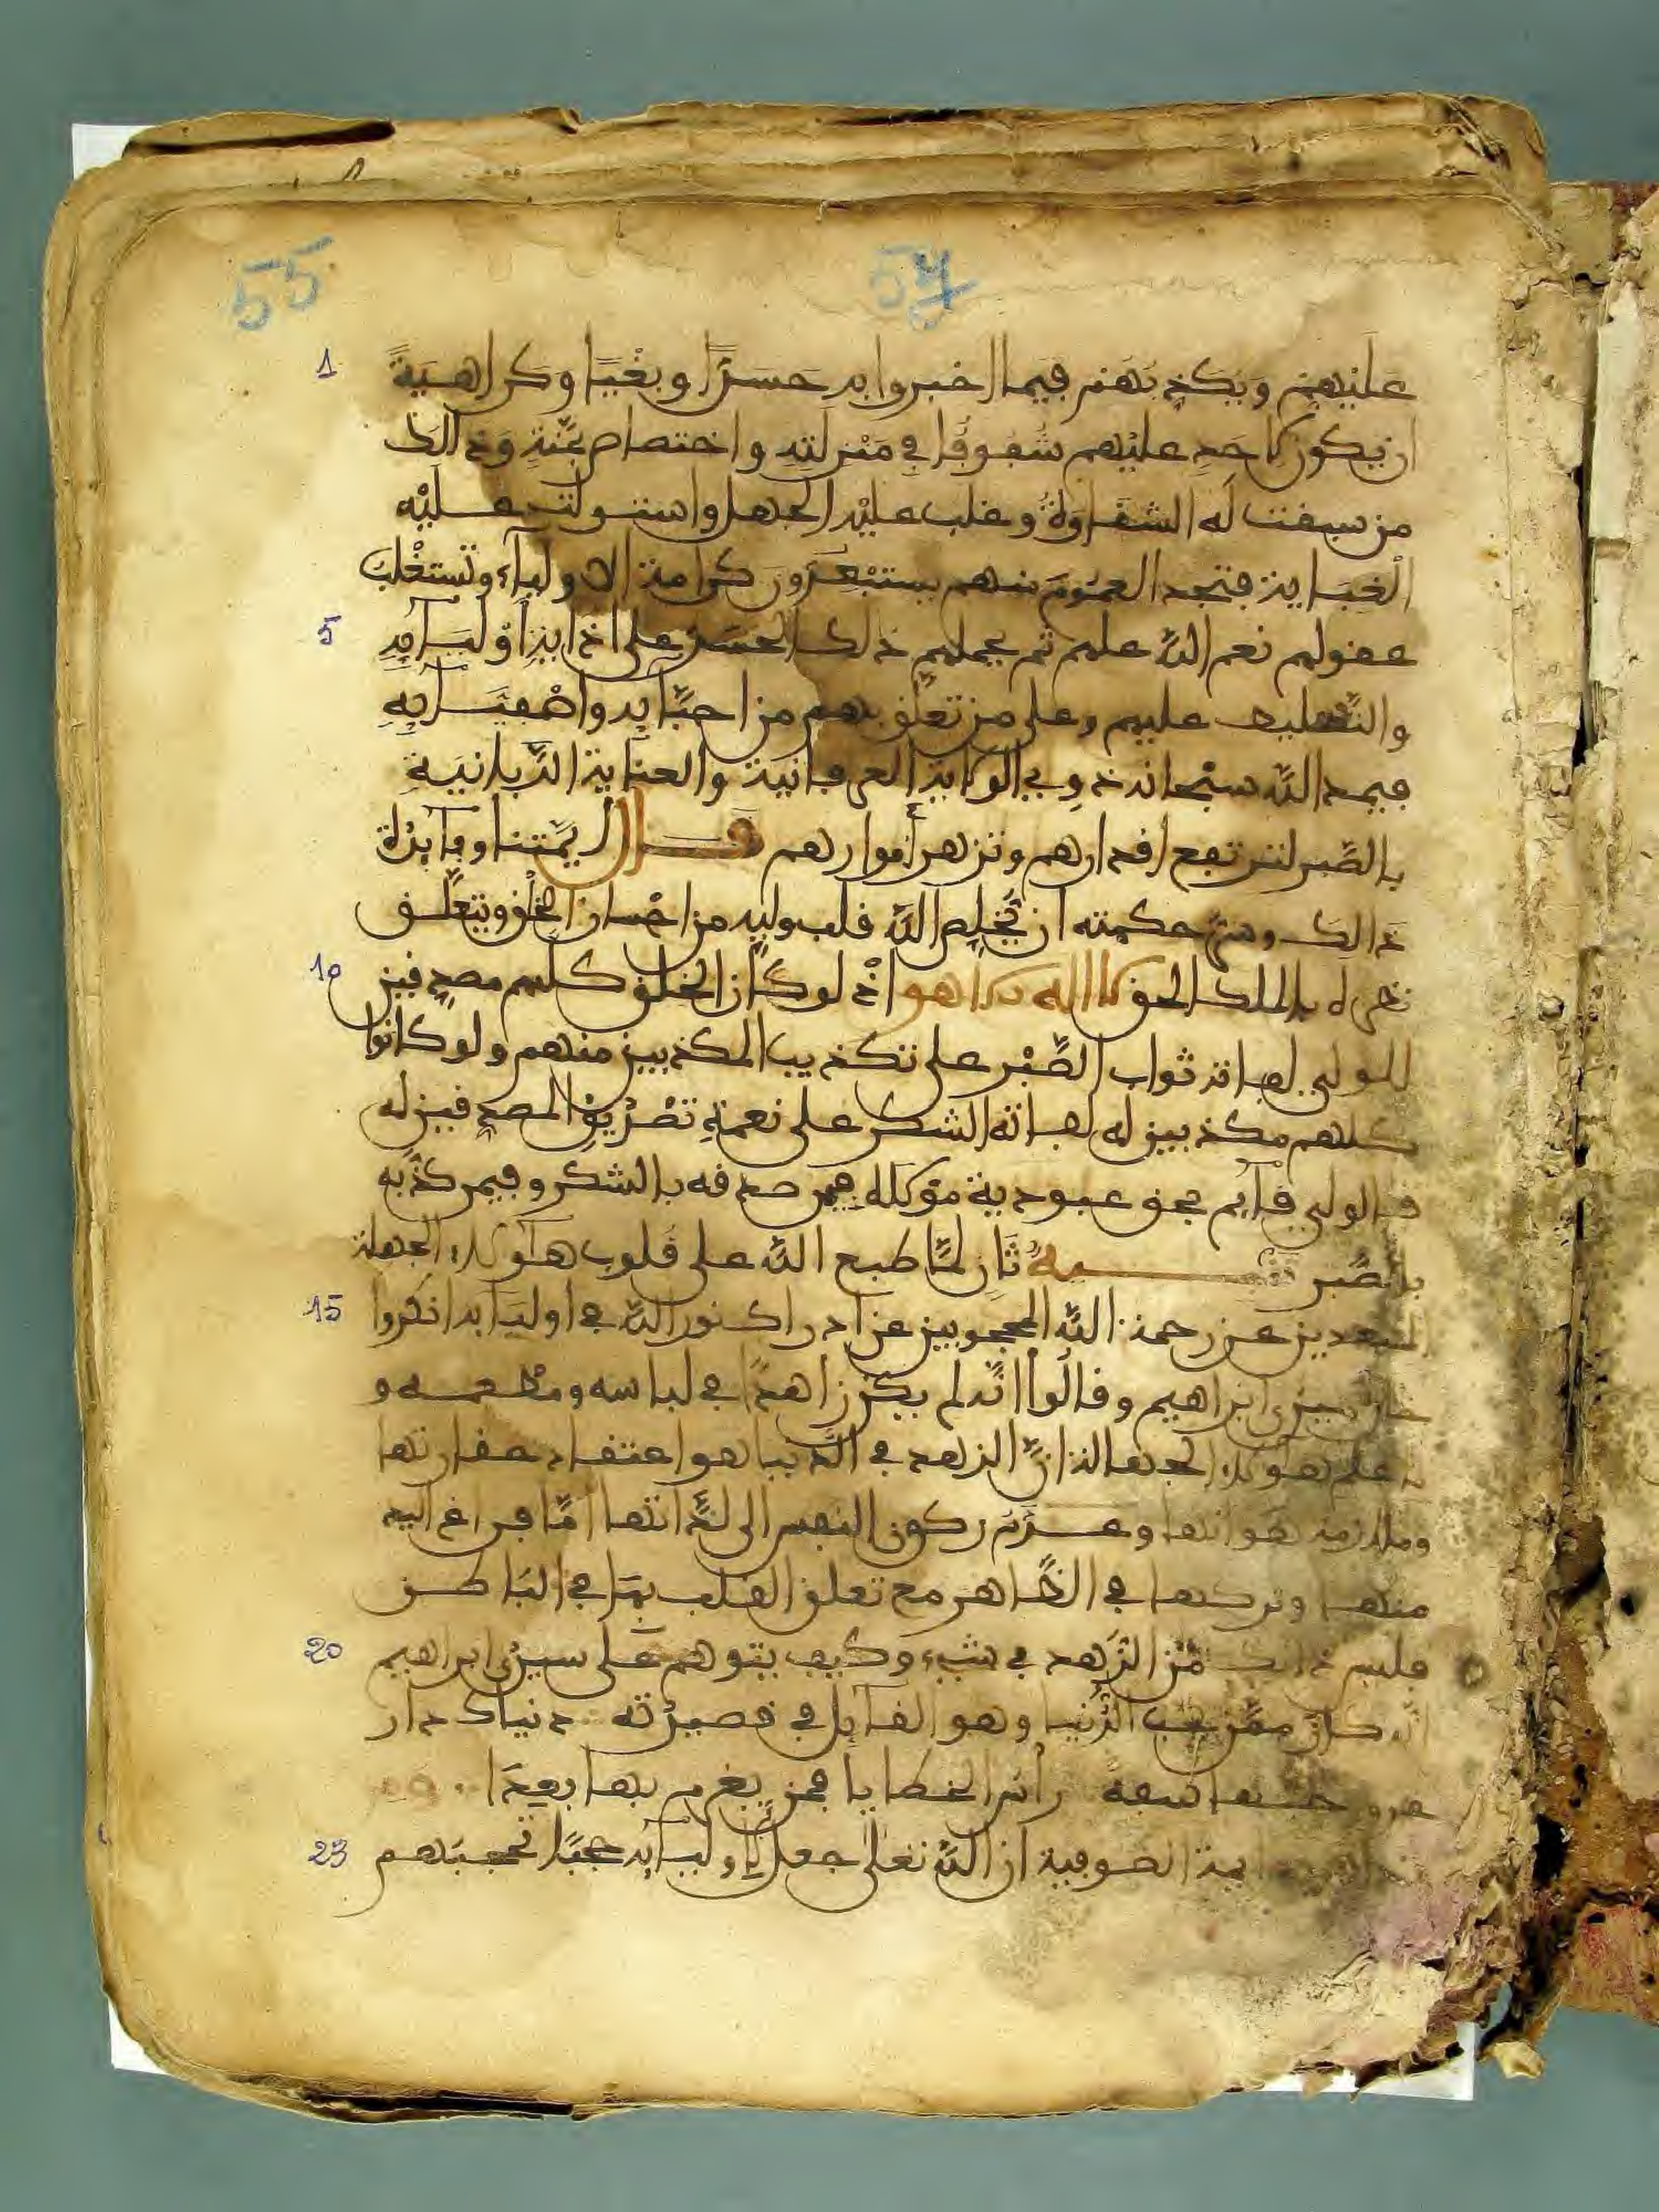 55 54
1 عليهم ويكذبهم فيما اخبروا به حسدًا وبغيًا وكراهيةً
ان يكون لاحد عليهم شفوفا في منزلته واختصاص بمنة وذالك
من سبقت له الشقاوة وغلب عليه الجهل واستولت عليه
الغباية فتجد العموم منهم يستبعدون كرامة الاولياء وتستغلب
5 عقولهم نعم الله عليهم ثم يحملهم ذلك الحسد على اذاية اوليآئه
والتسليط عليهم وعلى من تعلق بهم من احبابه واصفيآئه
فيمد الله سبحانه ذوي الولاية العرفانية والعناية الربانية
بالصبر لترتفع اقدارهم وتزهر أنوارهم قال ايمتنا وفآئدة
ذالك وسر حكمته ان يخلص الله قلب وليه من احسان الخلق ويتعلق
10 نظره بالملك الحق لا اله الا هو اذ لو كان الخلق كلهم مصدقين
للولي لفاته ثواب الصبر على تكذيب المكذبين منهم ولو كانوا
كلهم مكذبين له لفاته الشكر على نعمة تصديق المصدقين له
فالولي قآئم بحق عبودية مولاه فيمن صدقه بالشكر وفيمن كذبه
بالصبر تنبيه ثان لما طبع الله على قلوب هآولاء الجهلة
15 المبعدين عن رحمة الله المحجوبين عن ادراك نور الله في اوليآئه انكروا
حال سيدي ابراهيم وقالوا انه لم يكن زاهدًا في لباسه ومطعمه و
علم هولاء الجهالة ان الزهد في الدنيا هو اعتقاد حقارتها
وملازمة هوانها وعدم ركون النفس الى لذاتها اما فراغ اليد
منها وتركها في الظاهر مع تعلق القلب بها في الباطن
20 فليس ذالك من الزهد في شيء وكيف يتوهم على سيدي ابراهيم
انه كان ممن يحب الدنيا وهو القآئل في قصيدته دنياك دار
رأس الخطايا فمن يغرم بها بعدا
23 ايمة الصوفية ان الله تعلى جعل لاوليآئه حجبًا تحجبهم